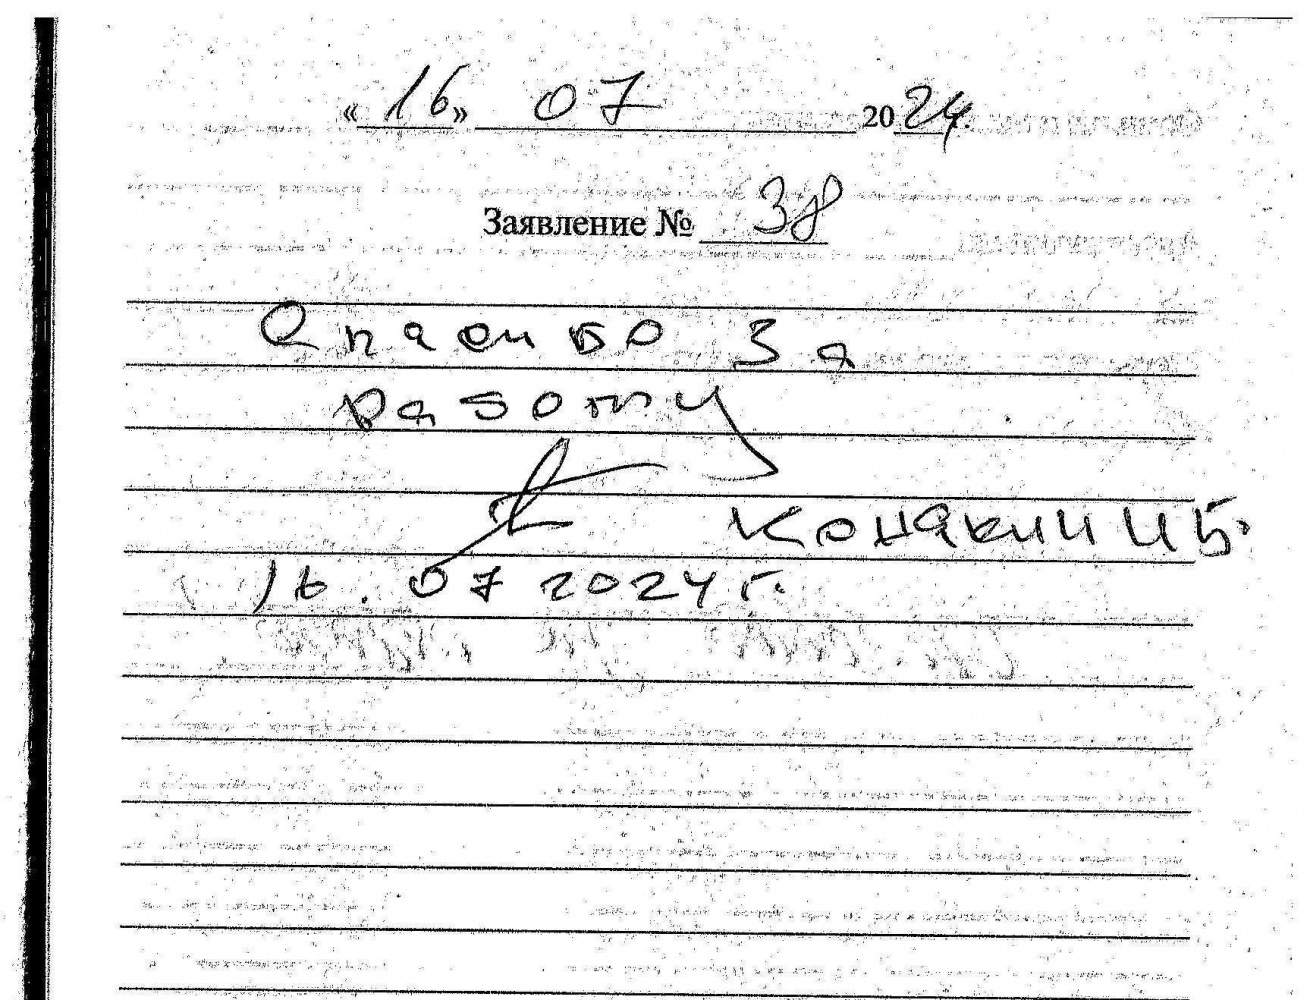 «16» 07 2024.
Заявление № 38
Спасибо за
работу
Конакин И Б.
16.07 2024 г.